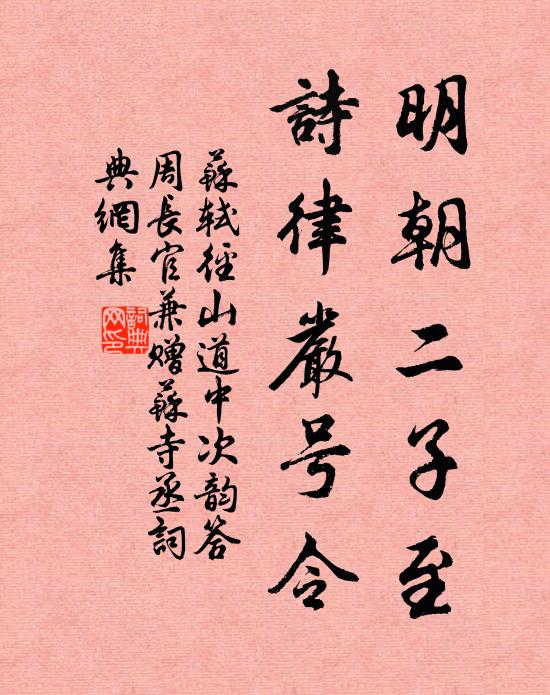 明朝二子至
詩律嚴号令
蘇軾徑山道中次韵答
周長官兼赠蘇寺丞詞
典網集
詞典
网印